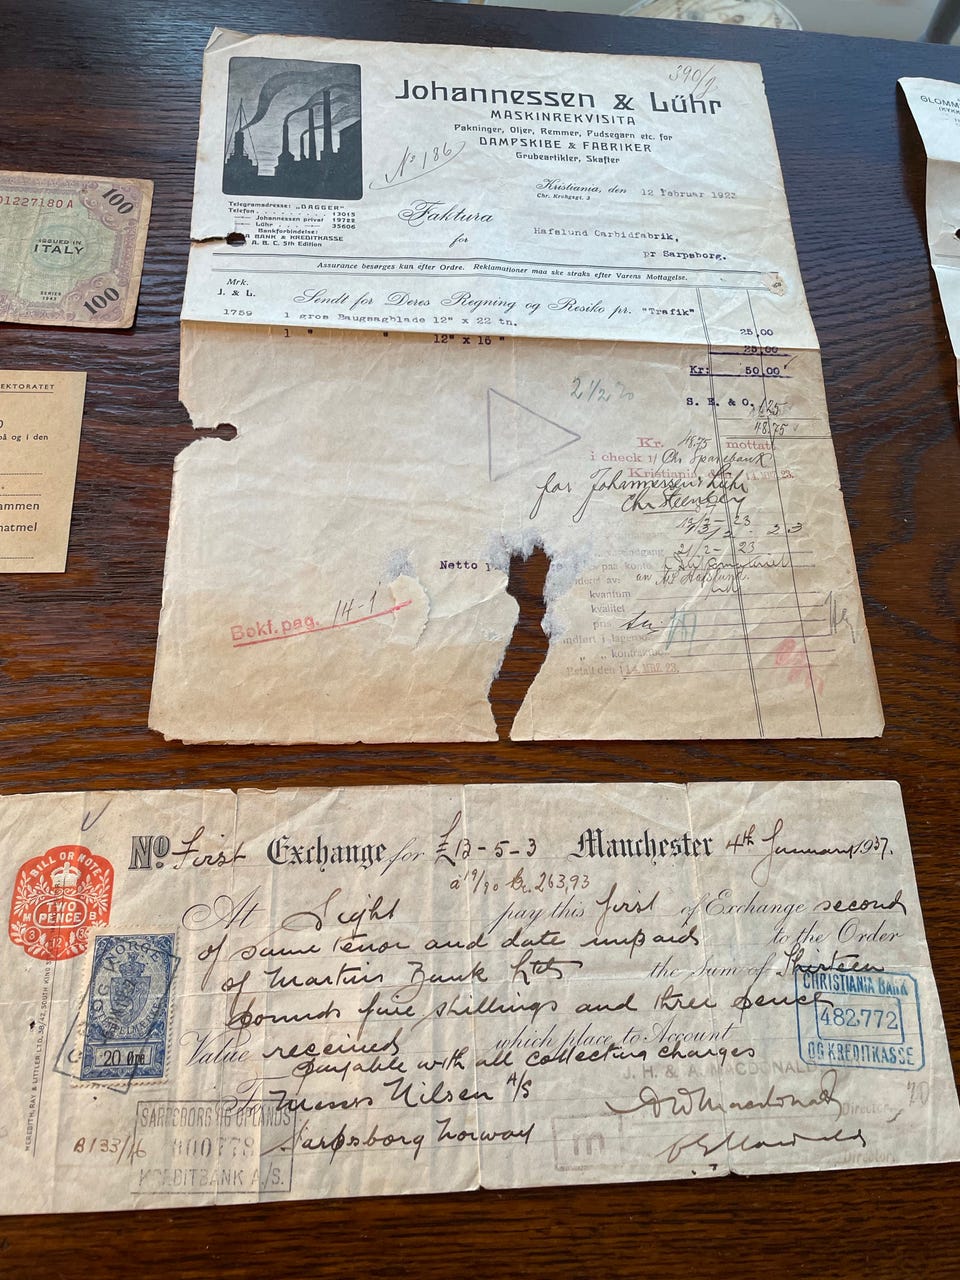 01227180 A
100
ISSUED IN
ITALY
SERIES
1943
100
EKTORATET
på og i den
ammen
natmel
GLOMM
390/9
Johannessen & Lühr
MASKINREKVISITA
Pakninger, Oljer, Remmer, Pudsegarn etc. for
DAMPSKIBE & FABRIKER
Grubeartikler, Skafter
No 186
Kristiania, den 12 Februar 1923
Chr. Krohgsgt. 3
Telegramadresse: "BAGGER"
Telefon 13015
Johannessen privat 19722
Lühr 35606
Bankforbindelse:
A BANK & KREDITKASSE
A. B. C. 5th Edition
Faktura
for
Hafslund Carbidfabrik,
pr Sarpsborg.
Assurance besørges kun efter Ordre. Reklamationer maa ske straks efter Varens Mottagelse.
Mrk.
J. & L.
Sendt for Deres Regning og Resiko pr. "Trafik"
1759 1 gros Baugsagblade 12" x 22 tn. 25,00
1 " " 12" x 16 " 25,00
Kr: 50,00
S. E. & O.
1,25
48,75
21/2 20
Kr. 48,75 mottatt
i check 1/ Chr. Sparebank
Kristiania 14 MRZ. 23
for Johannessen & Lühr
Chr Steenberg
21/2 - 23
Netto
kvantum
kvalitet
pris
Bokf. pag. 14-1
kontrakt
Betalt den 14 MRZ. 23.
BILL OR NOTE
TWO
PENCE
M B
3 12 3
No First Exchange for £13-5-3 Manchester 4th January 1937.
a 19/90 Kr. 263,93
At Sight pay this first of Exchange second
of same tenor and date unpaid to the Order
of Martins Bank Ltd the Sum of Thirteen
pounds five shillings and three pence
Value received which place to Account
payable with all collecting charges
NORGE
20 Øre
CHRISTIANIA BANK
482,772
OG KREDITKASSE
J. H. & A. MACDONALD
To Mons Nilsen A/S
Sarpsborg Norway
SARPSBORG OG OPLANDS
000778
KREDITBANK A/S.
B133/46
Director.
Director.
m
MEREDITH, RAY & LITTLER LTD.